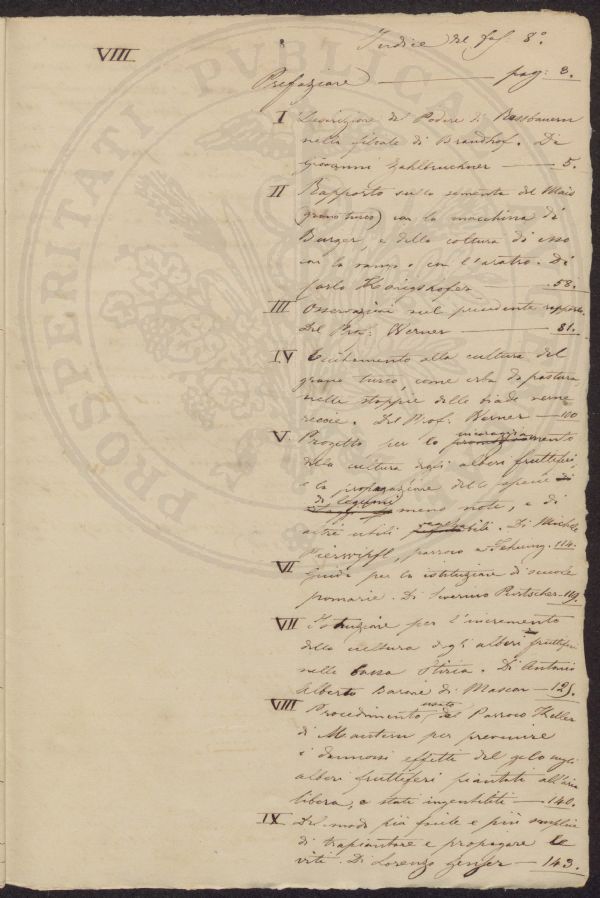 Indice del fas. 8°.
VIII
Prefazione — pag: 3.
I Descrizione del Podere di Rassbauern
nella filiale di Brandhof. Di
Giovanni Zahlbruckner — 5.
II Rapporto sulla sementa del Mais
grano turco) con la macchina di
Burger, e della coltura di esso
con la zappa o con l'aratro. Di
Carlo Königshofer — 58.
III Osservazioni sul precedente rapporto.
Del Prof: Werner — 81.
IV Eccitamento alla cultura del
grano turco, come erba da pastura
nelle stoppie delle biade
. Del Prof: Werner — 110
V. Progetto per lo
della cultura degli alberi fruttiferi,
e la propagazione delle specie di
di legumi meno note, e di
altri utili vegetabili. Di Michele
Pierwipfl, parroco a Fehring. 114.
VI Guida per la istituzione di scuole
pomarie. Di Severino Purtscher 119.
VII Istruzione per l'incremento
della cultura degli alberi fruttiferi
nella bassa Stiria. Di Antonio
Alberto Barone di Mascon — 125.
VIII Procedimento usato del Parroco Keller
di Mautern per prevenire
i dannosi effetti del gelo negli
alberi fruttiferi piantati all'aria
libera, e stati ingentiliti — 140.
IX Del modo più facile e più semplice
di trapiantare e propagare le
viti. Di Lorenzo — 143.
PROSPERITATI PUBLICAE